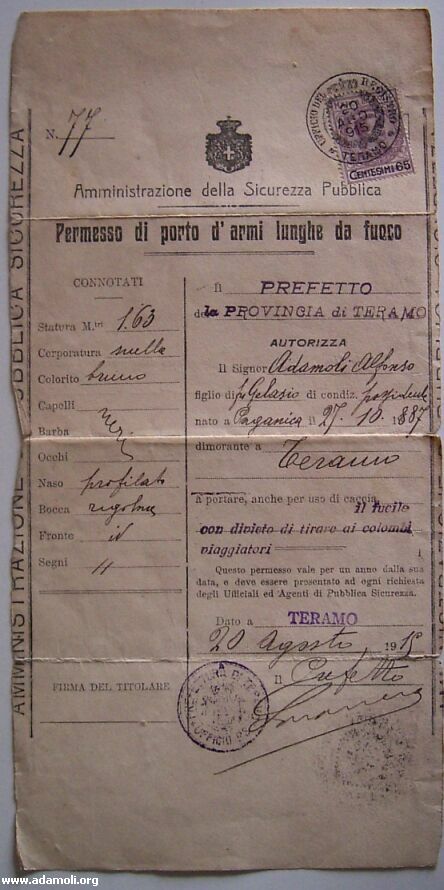 N. 77
UFFICIO DEL REGISTRO
TERAMO
CENTESIMI 65
Amministrazione della Sicurezza Pubblica
Permesso di porto d'armi lunghe da fuoco
CONNOTATI
Statura M.tri 1.63
Corporatura snella
Colorito bruno
Capelli
Barba neri
Occhi
Naso profilato
Bocca regolare
Fronte id
Segni //
FIRMA DEL TITOLARE
Il PREFETTO
della PROVINCIA di TERAMO
AUTORIZZA
Il Signor Adamoli Alfonso
figlio di Gelasio di condiz. possidente
nato a Paganica il 27. 10. 1887
dimorante a
Teramo
a portare, anche per uso di caccia, il fucile
con divieto di tirare ai colombi
viaggiatori
Questo permesso vale per un anno dalla sua
data, e deve essere presentato ad ogni richiesta
degli Ufficiali ed Agenti di Pubblica Sicurezza.
Dato a TERAMO
20 Agosto, 1915
Il Prefetto
AMMINISTRAZIONE
PUBBLICA SICUREZZA
www.adamoli.org